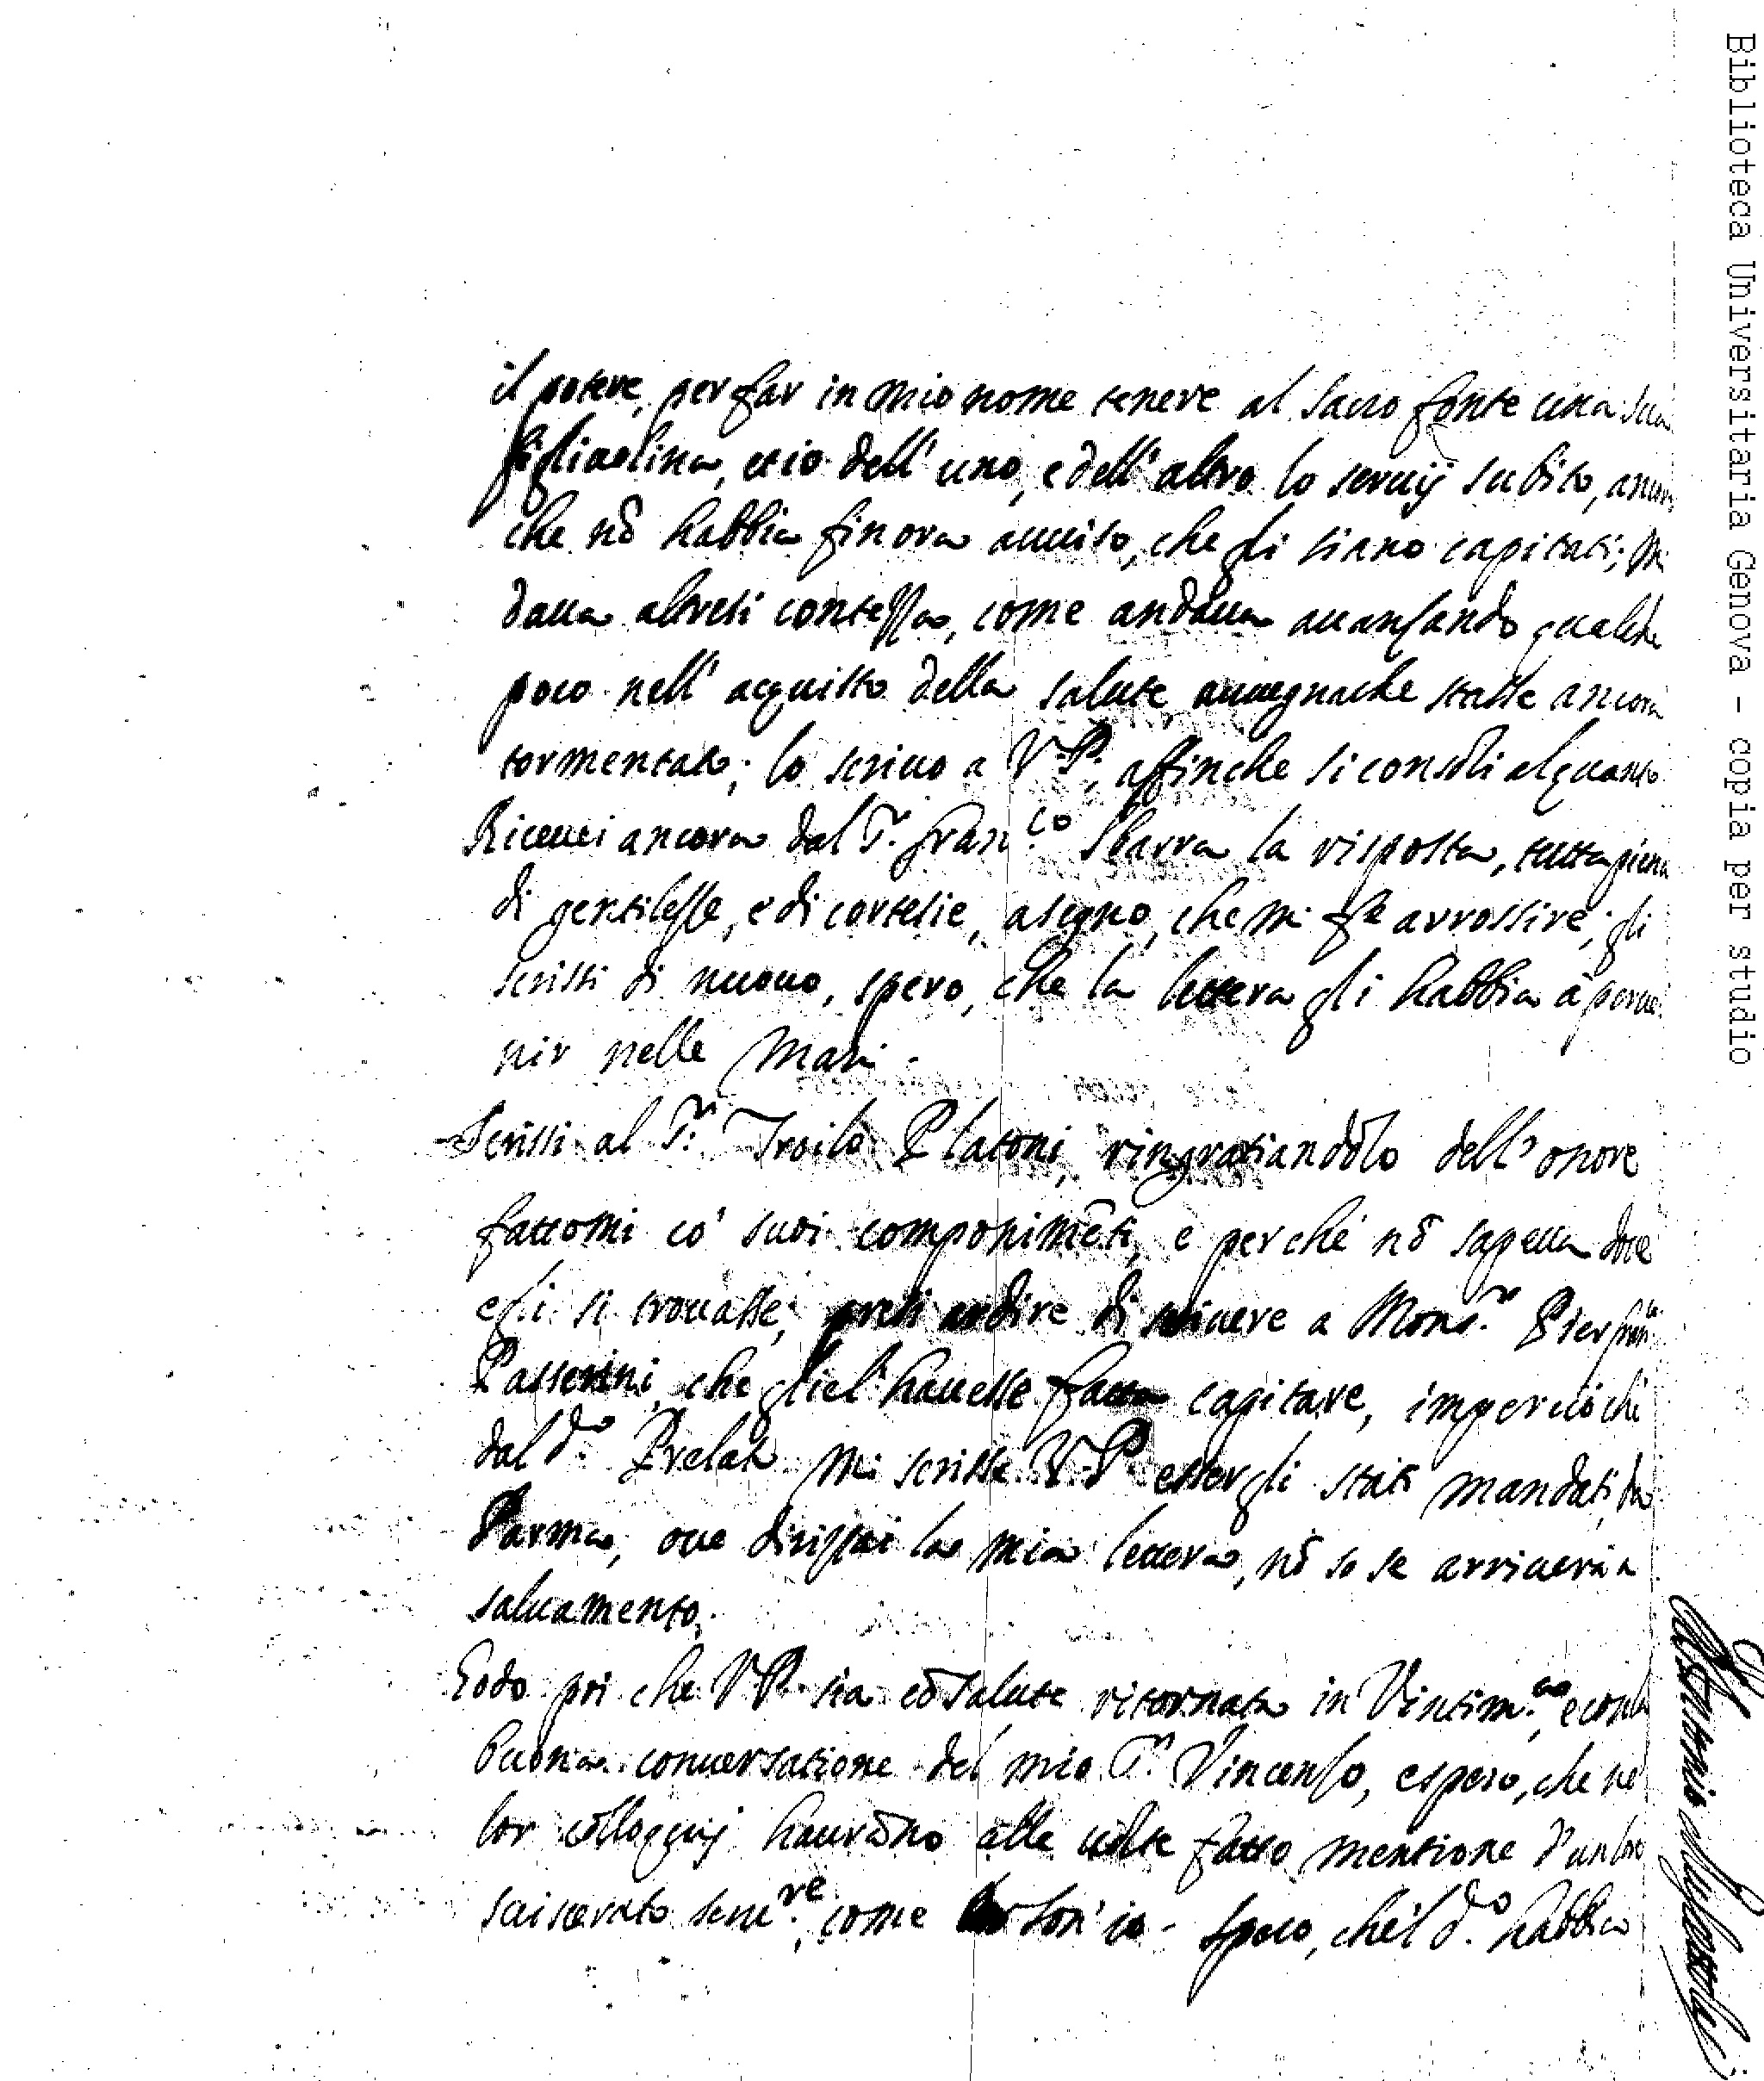 il potere, per far in mio nome tenere al sacro fonte una sua
figliuolina, et io dell' uno, e dell' altro lo servij subito, ancor
che nō habbia finora auuiso, che gli siano capitati; Mi
daua altresi contezza, come andaua auanzando qualche
poco nell' acquisto della salute, auuegnache stasse ancora
tormentato; lo scriuo a V.P., affinche si consoli alquanto.
Riceuei ancora dal Sr. Fran.co Sbarra la risposta, tutta piena
di gentilezze, e di cortesie, a segno, che mi fe arrossire; gli
scrissi di nuouo, spero, che la lettera gli habbia à perue:
nir nelle Mani.
Scrissi al Sr. Troilo Platoni, ringratiandolo dell' onore
fattomi co' suoi componimēti, e perche nō sapeua doue
egli si trouasse, presi ardire di scriuere a Mons.r Pierfran.
Passerini, che gliel' hauesse fatta capitare, imperciò che
dal d.o Prelato mi scrisse V.P. esser gli stati mandati da
Parma, oue dirizzai la mia lettera, nō so se arriuerà a
saluamento.
Godo poi che V.P. sia cō salute ritornata in Vintim.a, e con la
buona conuersatione del mio Sr. Vincenzo, e spero, che ne'
lor colloquij haurāno alle uolte fatto mentione d'un loro
suiscerato seru.re, come son' io. Spero, che'l d.o habbia
Biblioteca Universitaria Genova - copia per studio